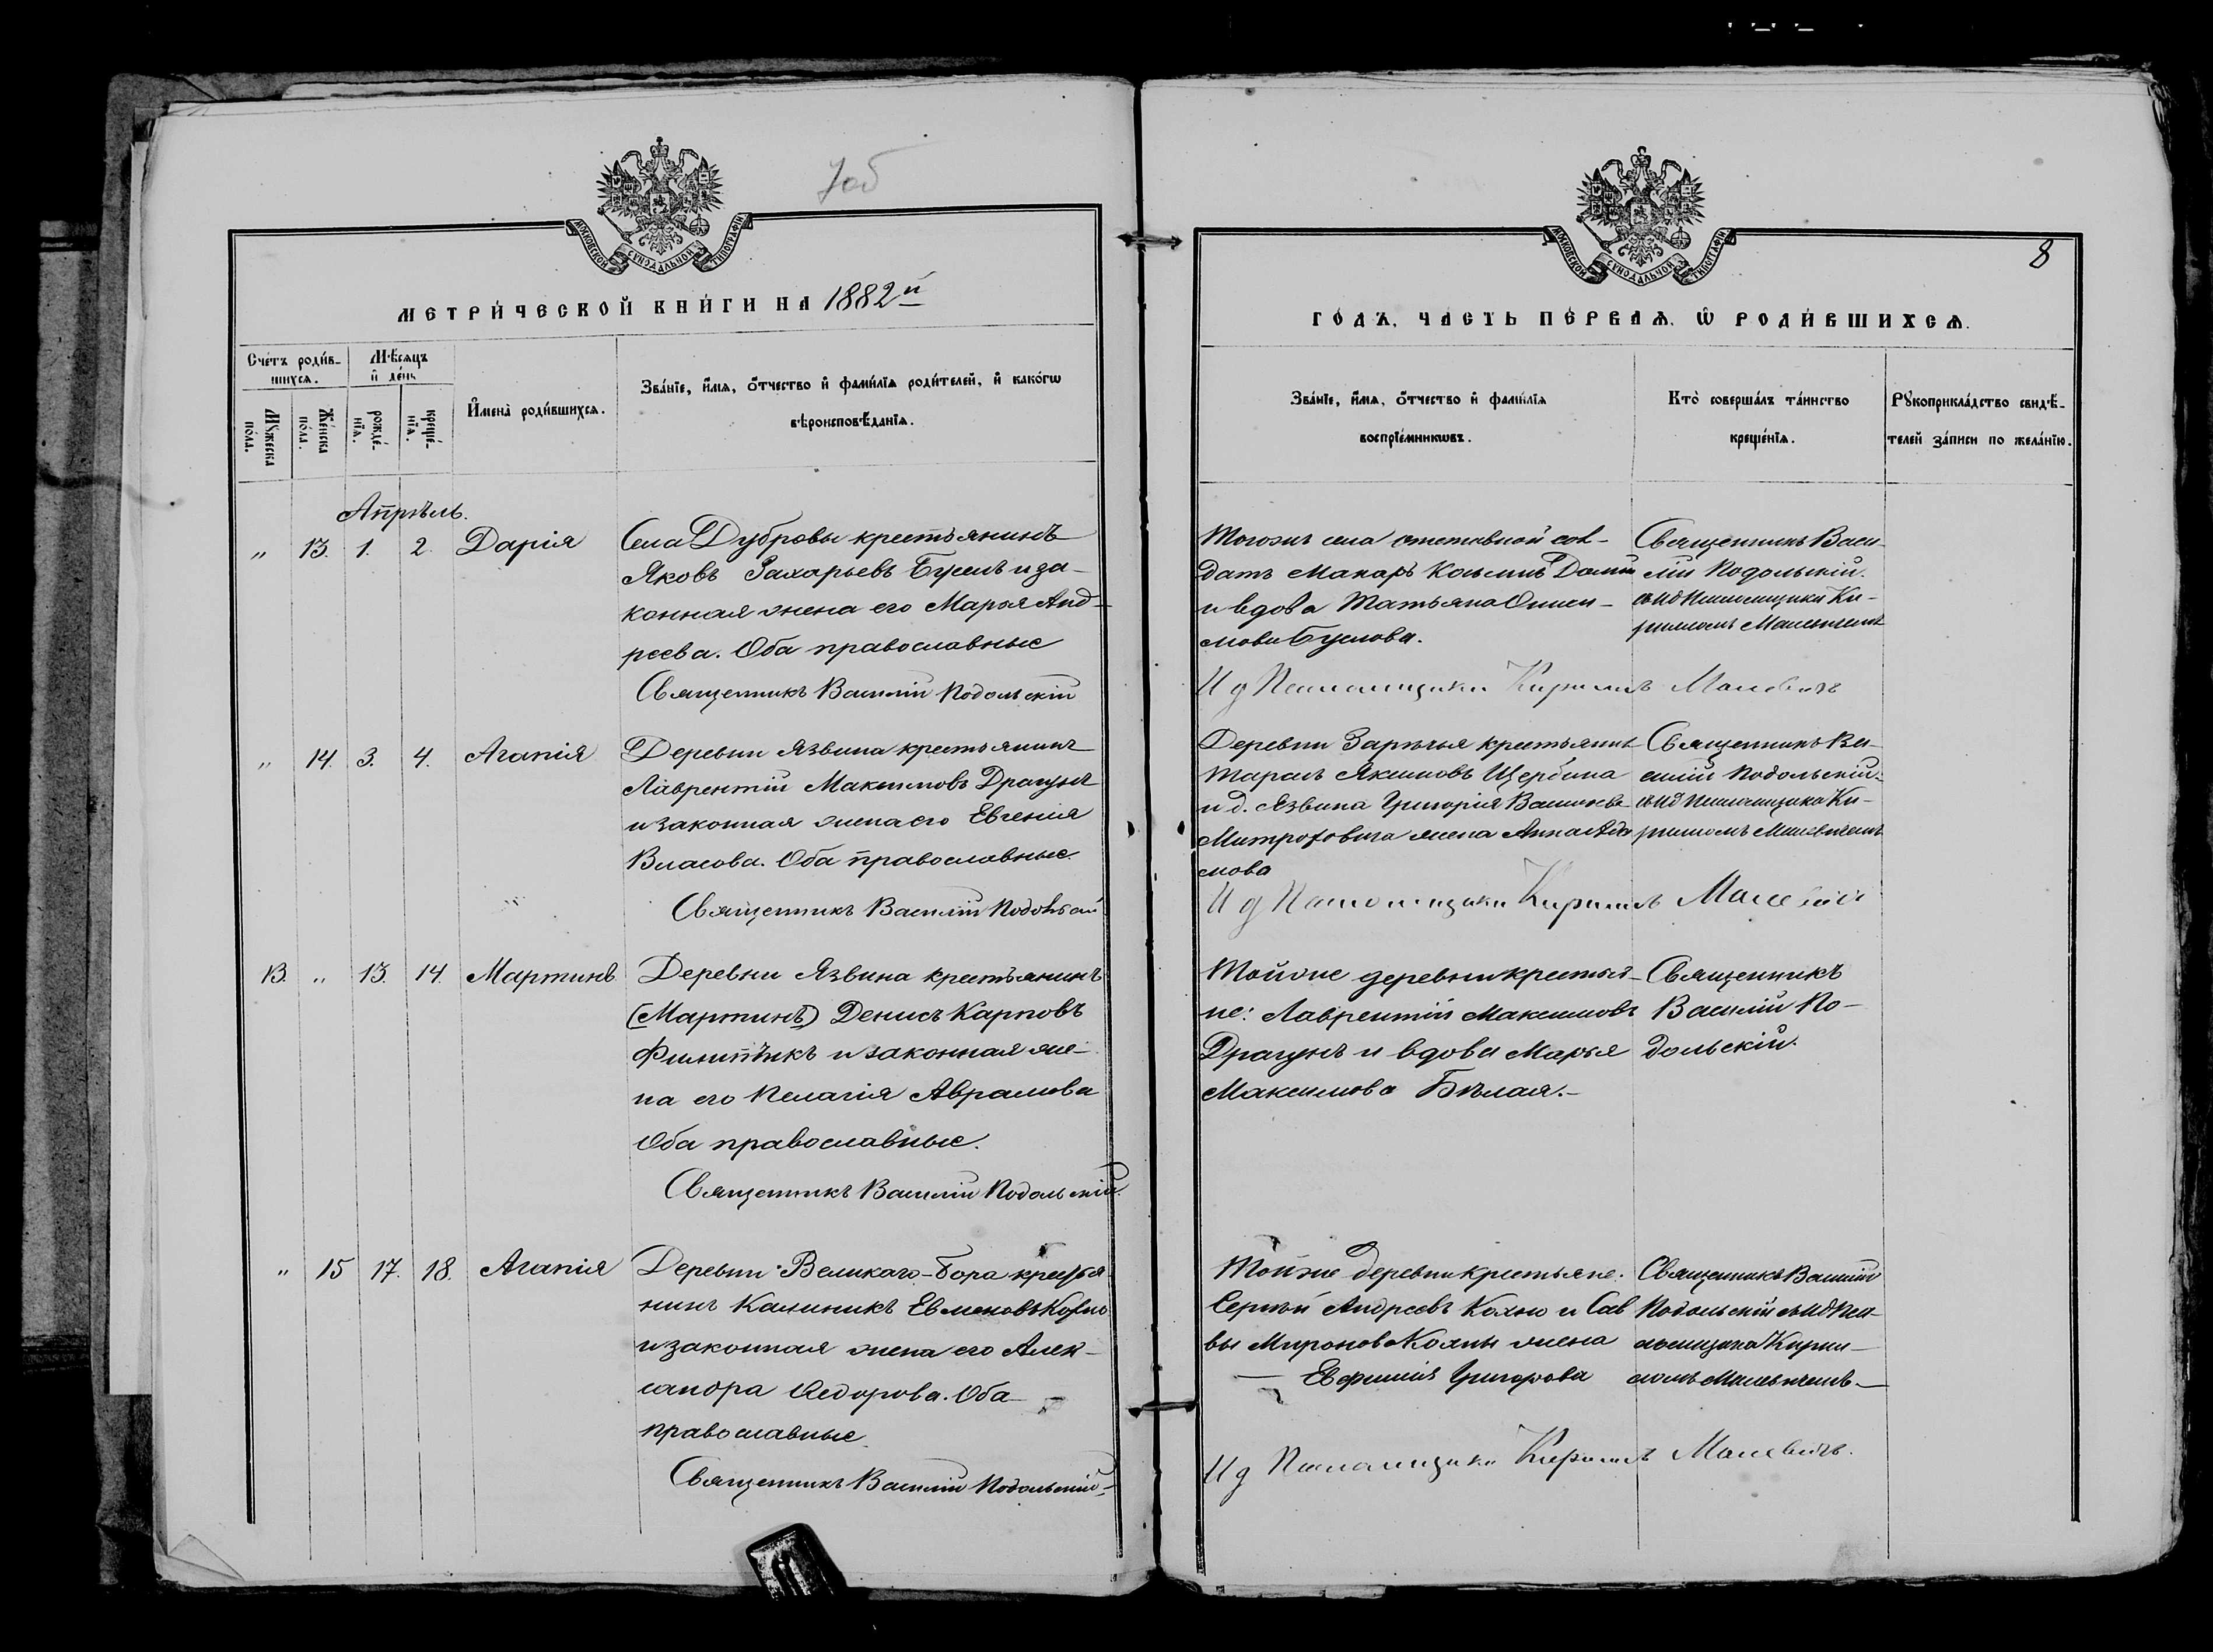 7об
МОСКОВСКОЙ СѴНОДАЛЬНОЙ ТИПОГРАФІИ
МЕТРИ́ЧЕСКОЙ КНИ́ГИ НА 1882й
Сче́тъ роди́в-
шихся.
Мѣ́сяцъ
и҆ де́нь
Мꙋ́жеска
по́ла.
Же́нска
по́ла.
рожде́-
нїѧ.
креще́-
нїѧ.
И҆мена̀ роди́вшихсѧ.
Зва́нїе, и҆́мѧ, ѻ҆́тчество и҆ фами́лїѧ роди́телей, и҆ како́гѡ
вѣроисповѣ́данїѧ.
Апрѣль.
„ 13. 1. 2. Дарія
Села Дубровы крестьянинъ
Яковъ Захарьевъ Бусел и за-
конная жена его Марья Анд-
реева. Оба православные
Священникъ Василій Подольскій
„ 14. 3. 4. Агапія
Деревни Язвина крестьянинъ
Лаврентій Максимовъ Драгунъ
и законная жена его Евгенія
Власова. Оба православные.
Священникъ Василій Подольскій
13. „ 13. 14. Мартинъ
Деревни Язвина крестьянинъ
(Мартинъ) Денисъ Карповъ
Филипчикъ и законная же-
на его Пелагія Аврамова
Оба православные.
Священникъ Василій Подольскій.
„ 15 17. 18. Агапія
Деревни Великаго-Бора крестья-
нинъ Калиникъ Евменовъ
и законная жена его Алек-
сандра Ѳедорова. Оба
православные
Священникъ Василій Подольскій
МОСКОВСКОЙ СѴНОДАЛЬНОЙ ТИПОГРАФІИ
8
ГО́ДЪ, ЧА́СТЬ ПЕ́РВАѦ, Ѡ҆ РОДИ́ВШИХСѦ.
Зва́нїе, и҆́мѧ, ѻ҆́тчество и҆ фами́лїѧ
воспрїе́мникѡвъ.
Кто̀ соверша́лъ та́инство
креще́нїѧ.
Рꙋкоприкла́дство свидѣ́-
телей за́писи по жела́нїю.
Тогожъ села отставной сол-
датъ Макаръ Козьминъ
и вдова Татьяна Аниси-
мова Буслова.
Священникъ Васи-
лій Подольскій.
съ ИД Псаломщика Ки-
рилломъ Малевичемъ
И д Псаломщика Кириллъ Малевичъ
Деревни Зарѣчья крестьянинъ
Тарасъ Якимовъ Щербина
и д. Язвина Григорія Васильева
Митрофовича жена Анна Ада-
мова
Священникъ Ва-
силій Подольскій
съ ИД Псаломщика Ки-
рилломъ Малевичемъ
И д Псаломщика Кириллъ Малевичъ
Тойже деревни крестья-
не: Лаврентій Максимовъ
Драгунъ и вдова Марья
Максимова Бѣлая.-
Священникъ
Василій По-
дольскій.
Тойже деревни крестьяне:
Сергѣй Андреевъ Колно и Сав-
вы Миронова жена
Евфимія Григорова
Священникъ Василій
Подольскій съ ИД Пса-
ломщика Кирил-
ломъ Малевичемъ
И д Псаломщика Кириллъ Малевичъ.